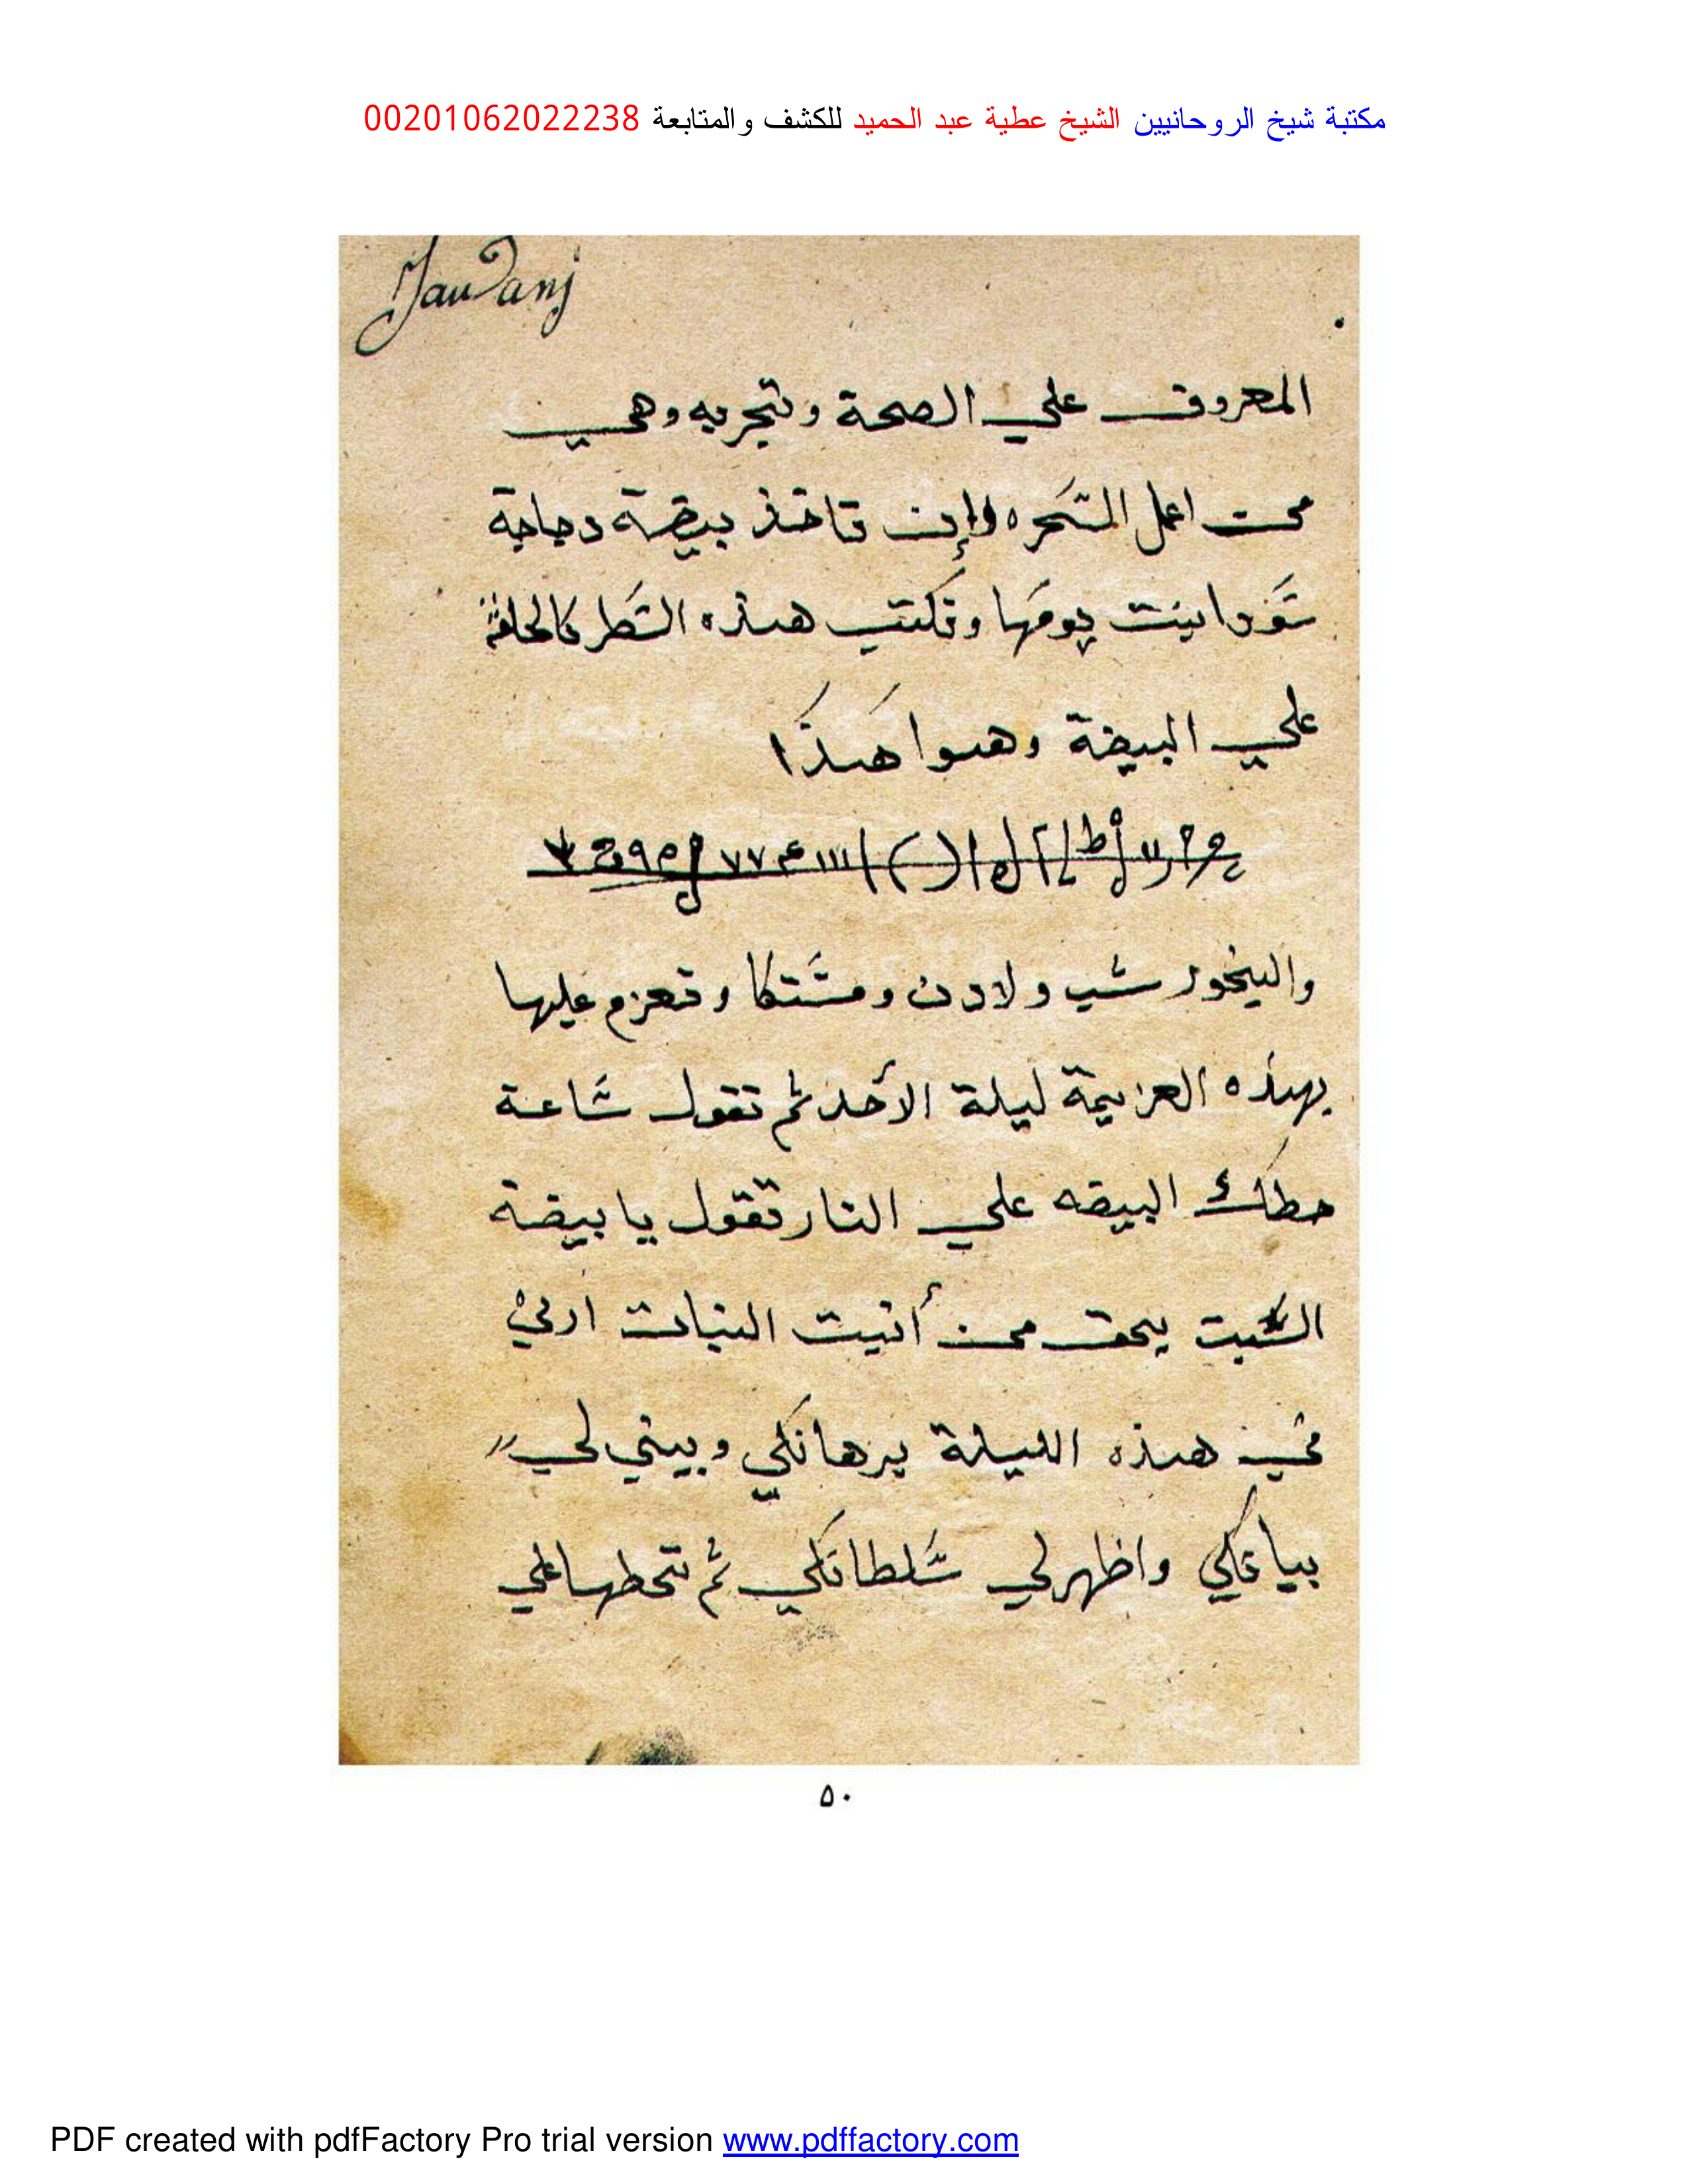 مكتبة شيخ الروحانيين الشيخ عطية عبد الحميد للكشف والمتابعة 00201062022238
المعروف علي الصحة وتجربه وهي
اعمل السَحره وإن تاخذ بيضة دجاجة
سَودا بنت يومَها وتكتب هذه السَطر كالحلقة
علي البيضة وهوا هَكذا
والبخور شب ولادن ومسَتكا وتعزم عليها
بهذه العزيمة ليلة الأحد ثم تقول سَاعة
حطك البيضه علي النار تقول يا بيضة
السبت بحق من أنبت النبات اريني
في هذه الليلة برهانكي وبيني لي
بيانكي واظهرلي سَلطانكي ثم تحطها علي
٥٠
PDF created with pdfFactory Pro trial version www.pdffactory.com